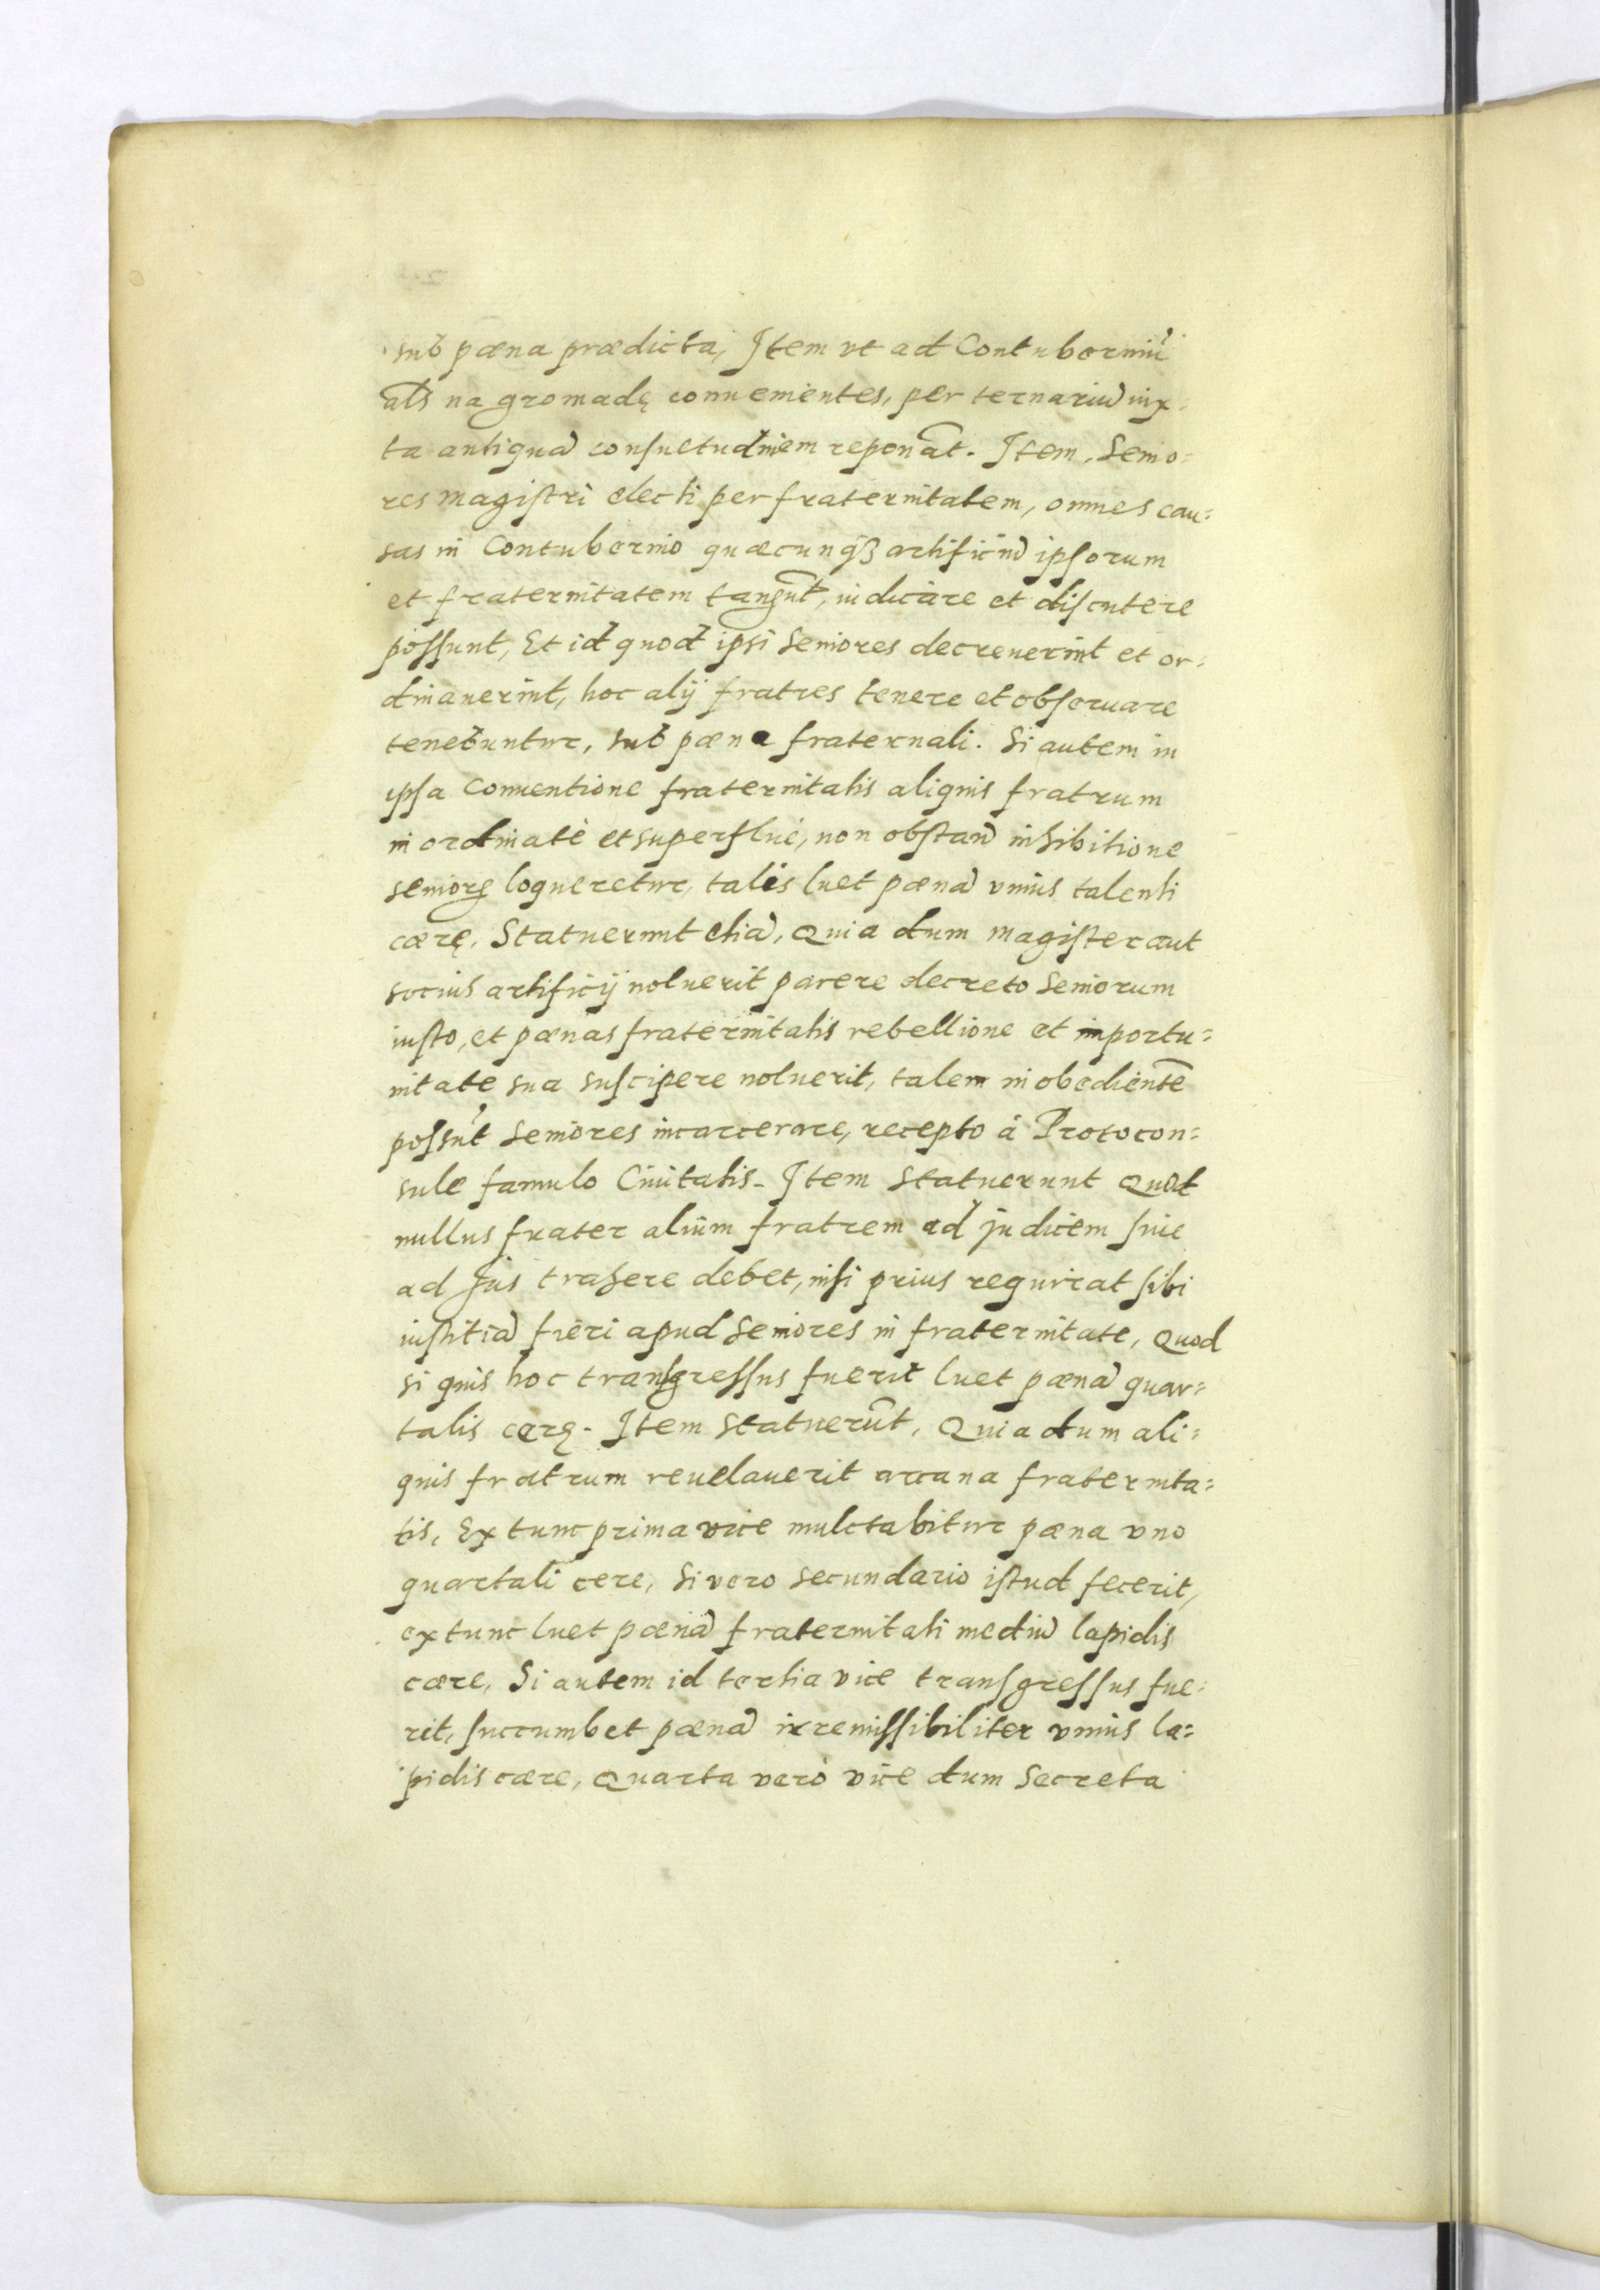 sub pæna prædicta, Item vt ad Contuberniũ
als̃ na gromadę conuenientes, per ternariũ iux-
ta antiquã consuetudinem reponãt. Item, Senio=
res magistri electi per fraternitatem, omnes cau=
sas in Contubernio quæcunqȝ artificiũ ipsorum
et fraternitatem tangũt, iudicare et discutere
possunt, Et id quod ipsi Seniores decreuerint et or=
dinauerint, hoc alij fratres tenere et obseruare
tenebuntur, sub pæna fraternali. Si autem in
ipsa Conuentione fraternitatis aliquis fratrum
inordinatè et superfluè, non obstañ inhibitione
seniorꝝ loqueretur, talis luet pænã vnius talenti
cæræ, Statuerunt etiã, Quia dum magister aut
socius artificij noluerit parere decreto Seniorum
iusto, et pænas fraternitatis rebellione et importu=
nitate sua suscipere noluerit, talem inobedientẽ
possũt Seniores incarcerare, recepto à Protocon=
sule famulo Ciuitatis. Item Statuerunt Quod
nullus frater alium fratrem ad judicem siue
ad Jus trahere debet, nisi prius requirat sibi
iustitiã fieri apud Seniores in fraternitate, Quod
si quis hoc transgressus fuerit luet pænã quar=
talis ceræ. Item Statuerũt, Quia dum ali=
quis fratrum reuelauerit arcana fraternita=
tis, Extunc prima vice mulctabitur pæna vno
quartali cere, Si vero secundario istud fecerit,
extunc luet pænã fraternitati mediũ lapidis
cære, Si autem id tertia vice transgressus fue=
rit, succumbet pænã irremissibiliter vnius la=
pidis cære, Quarta verò vice dum Secreta